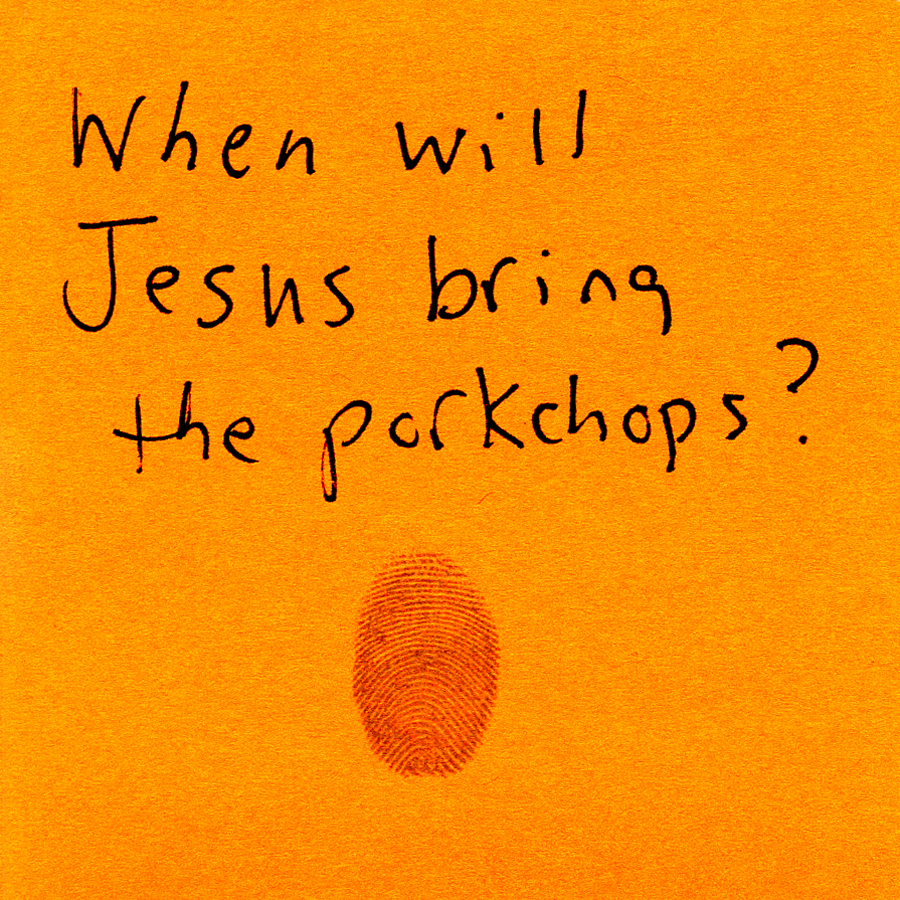 When will
Jesus bring
the porkchops?